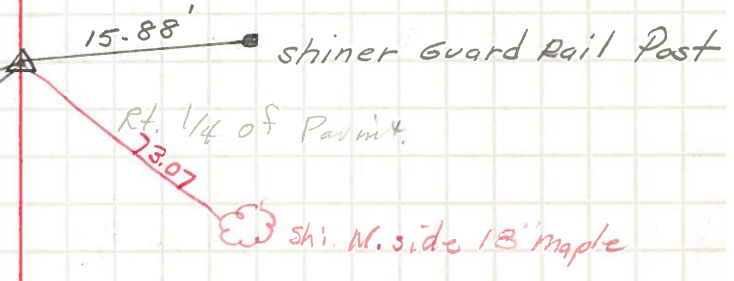 15.88'
shiner Guard Rail Post
Rt. 1/4 of Pavm't.
73.07
shi. N. side 18" maple